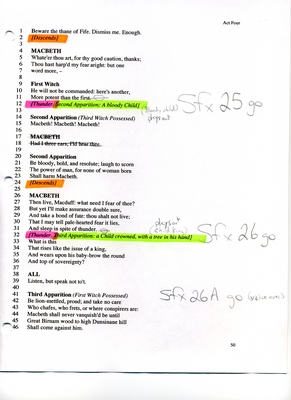 Act Four
1 Beware the thane of Fife. Dismiss me. Enough.
2 [Descends]
3
4 MACBETH
5 Whate'er thou art, for thy good caution, thanks;
6 Thou hast harp'd my fear aright: but one
7 word more, –
8
9 First Witch
10 He will not be commanded: here's another,
11 More potent than the first.
12 [Thunder. Second Apparition: A bloody Child]
13
Sfx 25 go
14 Second Apparition (Third Witch Possessed)
15 Macbeth! Macbeth! Macbeth!
16
17 MACBETH
18 Had I three ears, I'ld hear thee.
19
20 Second Apparition
21 Be bloody, bold, and resolute; laugh to scorn
22 The power of man, for none of woman born
23 Shall harm Macbeth.
24 [Descends]
25
26 MACBETH
27 Then live, Macduff: what need I fear of thee?
28 But yet I'll make assurance double sure,
29 And take a bond of fate: thou shalt not live;
30 That I may tell pale-hearted fear it lies,
31 And sleep in spite of thunder.
32 [Thunder. Third Apparition: a Child crowned, with a tree in his hand]
Sfx 26 go
33 What is this
34 That rises like the issue of a king,
35 And wears upon his baby-brow the round
36 And top of sovereignty?
37
38 ALL
39 Listen, but speak not to't.
40
41 Third Apparition (First Witch Possessed)
Sfx 26A go (voice over)
42 Be lion-mettled, proud; and take no care
43 Who chafes, who frets, or where conspirers are:
44 Macbeth shall never vanquish'd be until
45 Great Birnam wood to high Dunsinane hill
46 Shall come against him.
50